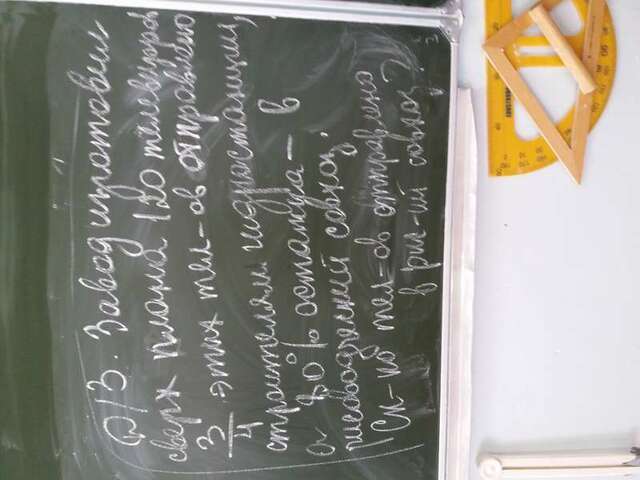 Д/З. Завод изготовил
сверх плана 120 телевизоров
3/4 этих тел-ов отправлено
строителям гидростанции,
а 80% остатка - в
рисоводческий совхоз.
Ск-ко тел-ов отправлено
в рис-ий совхоз?